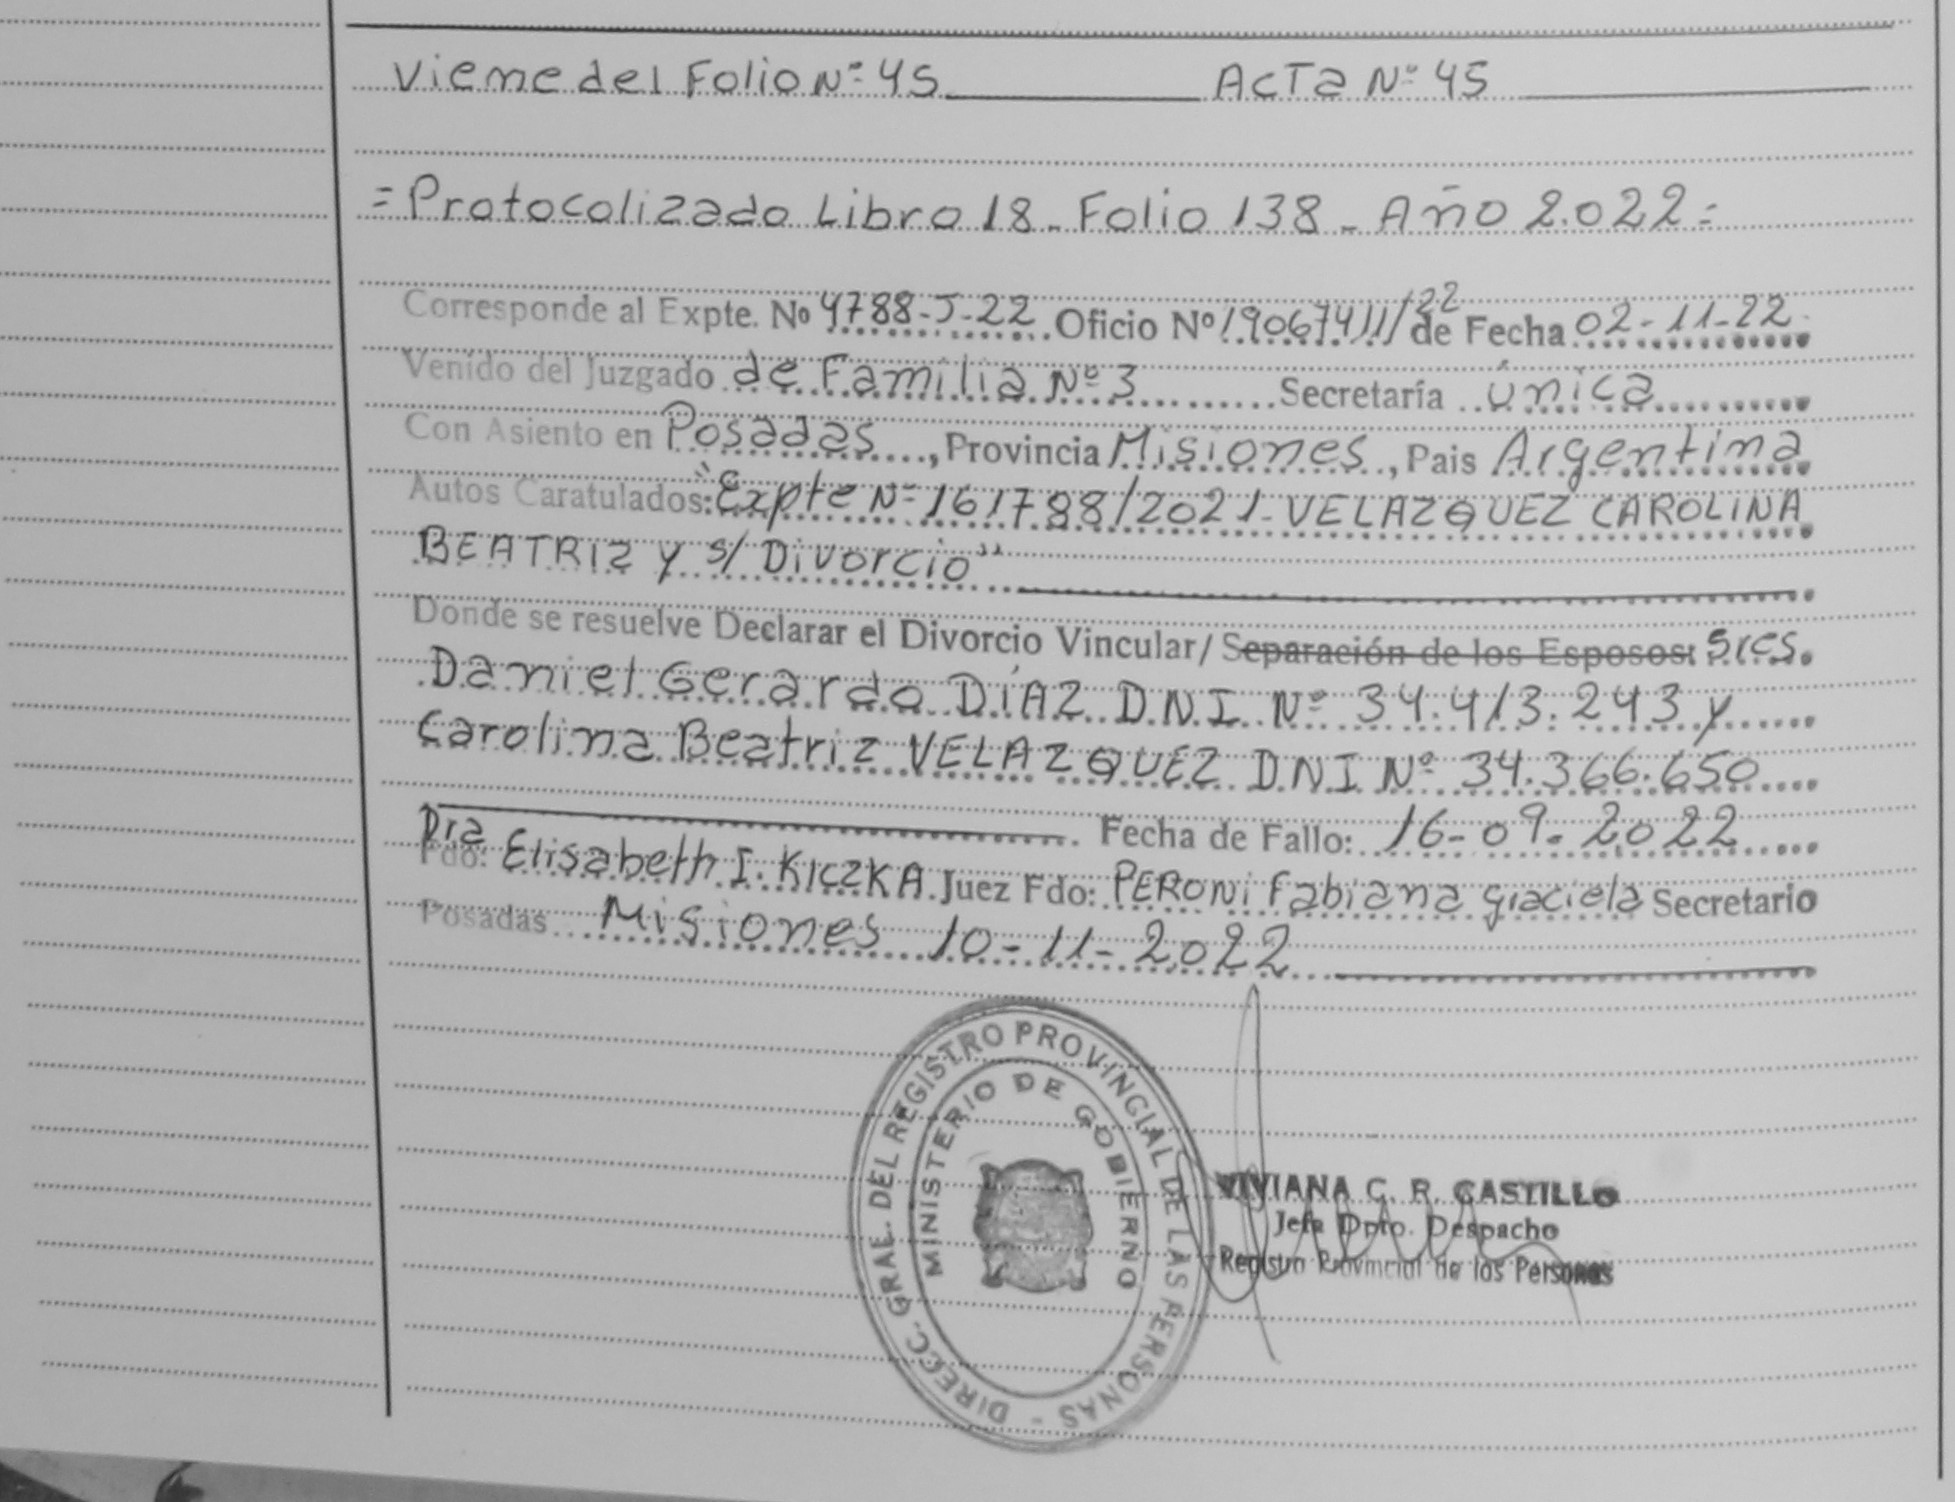 Viene del Folio Nº 45 Acta Nº 45
= Protocolizado Libro 18 - Folio 138 - Año 2.022 =
Corresponde al Expte. Nº 4788-J-22 Oficio Nº 19067411/22 de Fecha 02-11-22
Venido del Juzgado de Familia Nº 3 Secretaría única
Con Asiento en Posadas, Provincia Misiones, Pais Argentina
Autos Caratulados: "Expte Nº 161788/2021 - VELAZQUEZ CAROLINA
BEATRIZ y s/ Divorcio"
Donde se resuelve Declarar el Divorcio Vincular/ Separación de los Esposos: Sres.
Daniel Gerardo DÍAZ D.N.I. Nº 34.413.243 y
Carolina Beatriz VELAZQUEZ DNI Nº 34.366.650
Fecha de Fallo: 16-09-2022
Fdo: Dra Elisabeth I. KICZKA Juez Fdo: PERONI Fabiana Graciela Secretario
Posadas Misiones 10-11-2022
DIRECC. GRAL. DEL REGISTRO PROVINCIAL DE LAS PERSONAS -
MINISTERIO DE GOBIERNO
VIVIANA C. R. CASTILLO
Jefa Dpto. Despacho
Registro Provincial de las Personas